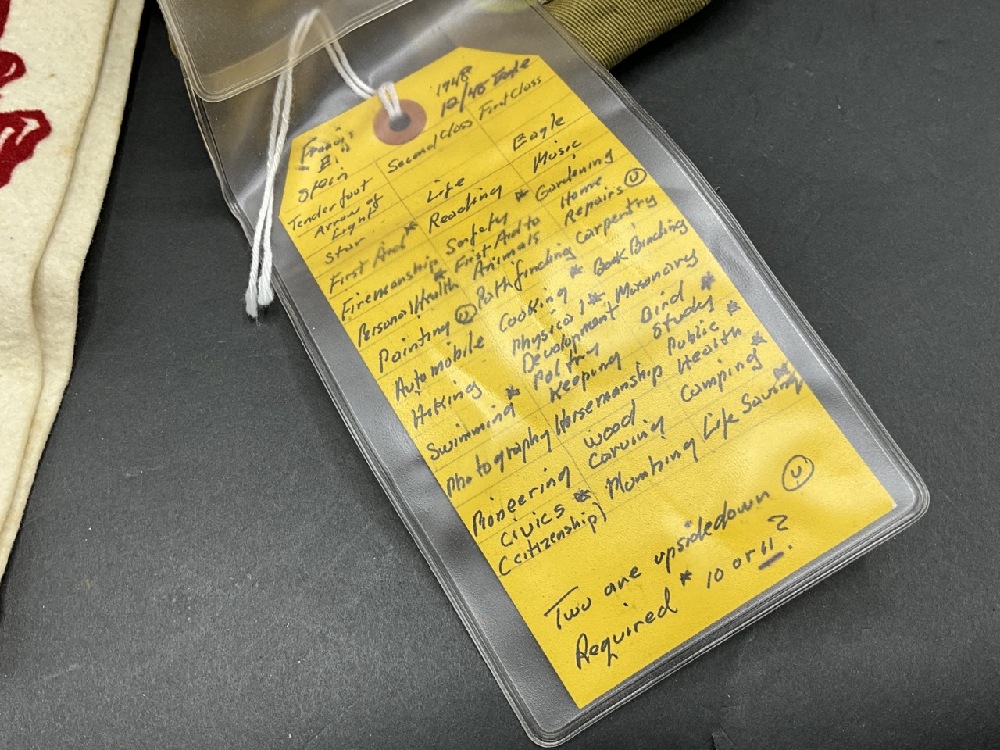 1948
12/48 Eagle
Francis
Stein
Tenderfoot
Arrow of
Light
Star
First Aid *
Firemanship
Personal Health *
Painting (U)
Automobile
Hiking
Swimming *
Photography
Pioneering
Civics *
(citizenship)
Second Class
Life
Reading
Safety *
First Aid to
Animals
Pathfinding
Cooking *
Physical *
Development
Poltry
Keeping
Horsemanship
Wood
Carving
Plumbing
First Class
Eagle
Music
Gardening
Home
Repairs (U)
Carpentry
Book Binding
Masonary
Bird *
Study
Public *
Health
Camping *
Life Saving *
Two are upsidedown (U)
Required * 10 or 11?